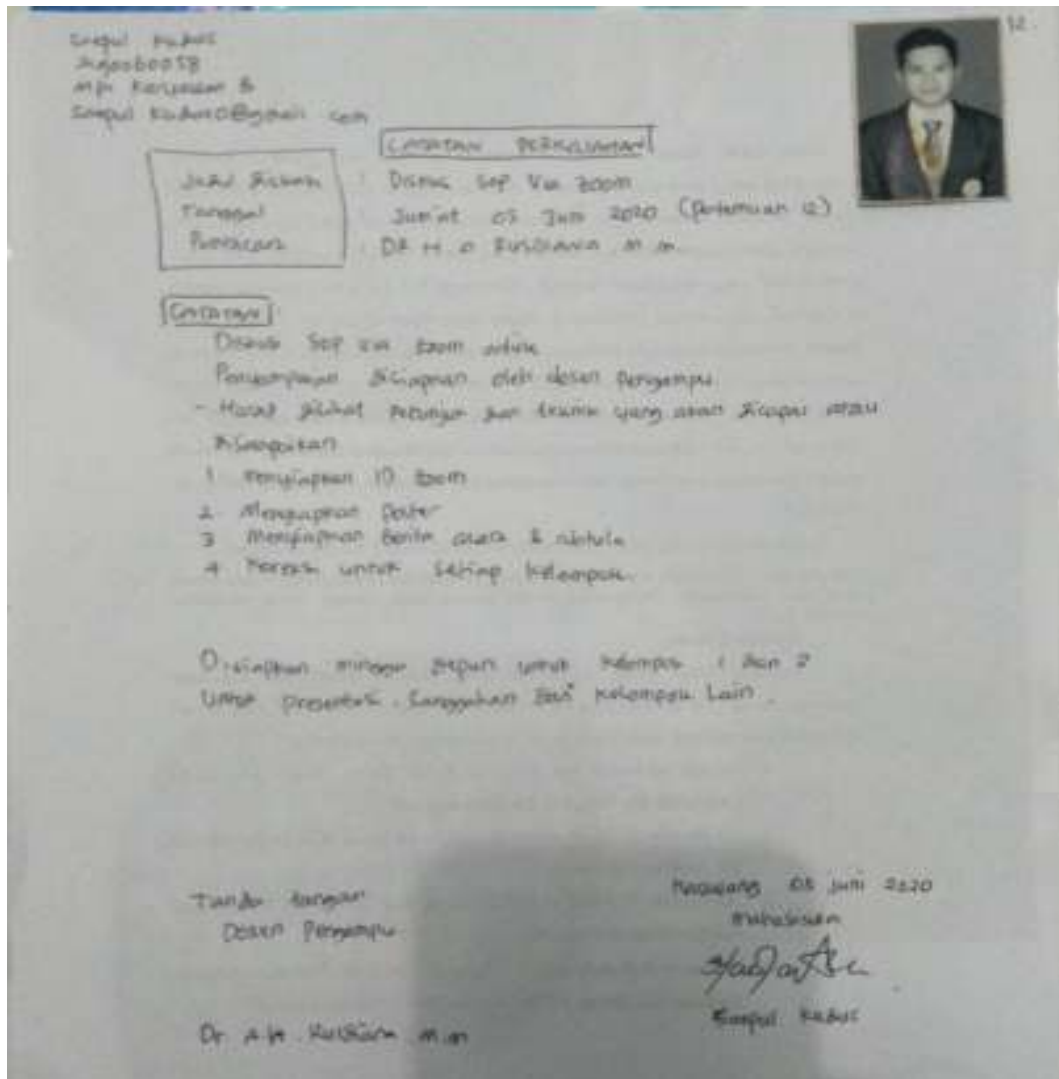 12.
Kudus
MPI Karyawan B
CATATAN PERKULIAHAN
Judul Diskusi : Diskusi Sop Via zoom
Tanggal : Jum'at 05 Juni 2020 (Pertemuan 12)
: DR H A RUSDIANA M.M.
CATATAN :
Diskusi Sop via zoom online
disiapkan oleh dosen Pengampu
- Harus dilihat Petunjuk dan teknik yang akan dicapai atau
disampaikan
1 Menyiapkan ID zoom
2 Menyiapkan Poster
3 Menyiapkan Berita acara & notula
4 untuk Setiap kelompok.
Disiapkan minggu depan untuk kelompok 1 dan 2
Untuk presentasi. Sanggahan dari kelompok Lain.
Tanda tangan
Dosen Pengampu
Karawang 05 Juni 2020
Mahasiswa
Kudus
Dr. A.H. Rusdiana M.m